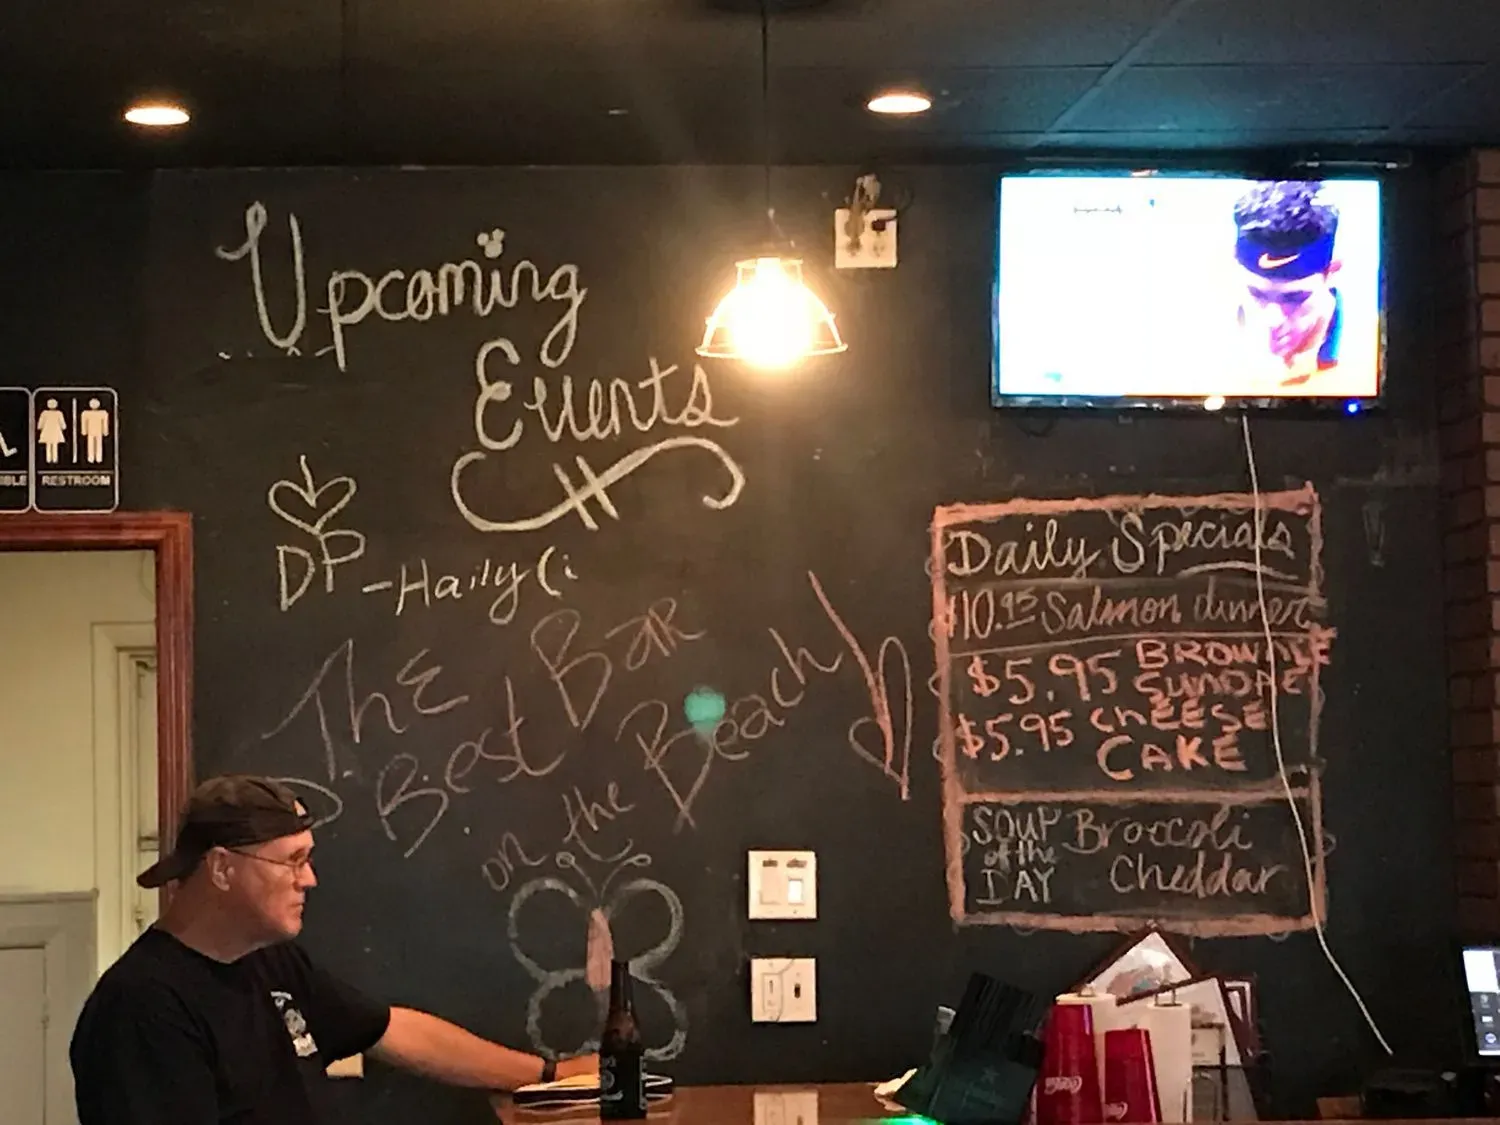 Upcoming
Events
DP -Haily (:
The
Best Bar
on the Beach
IBLE
RESTROOM
Daily Specials
$10.95 Salmon dinner
$5.95 BROWNIE
SUNDAE
$5.95 CHEESE
CAKE
SOUP of the DAY
Broccoli
Cheddar